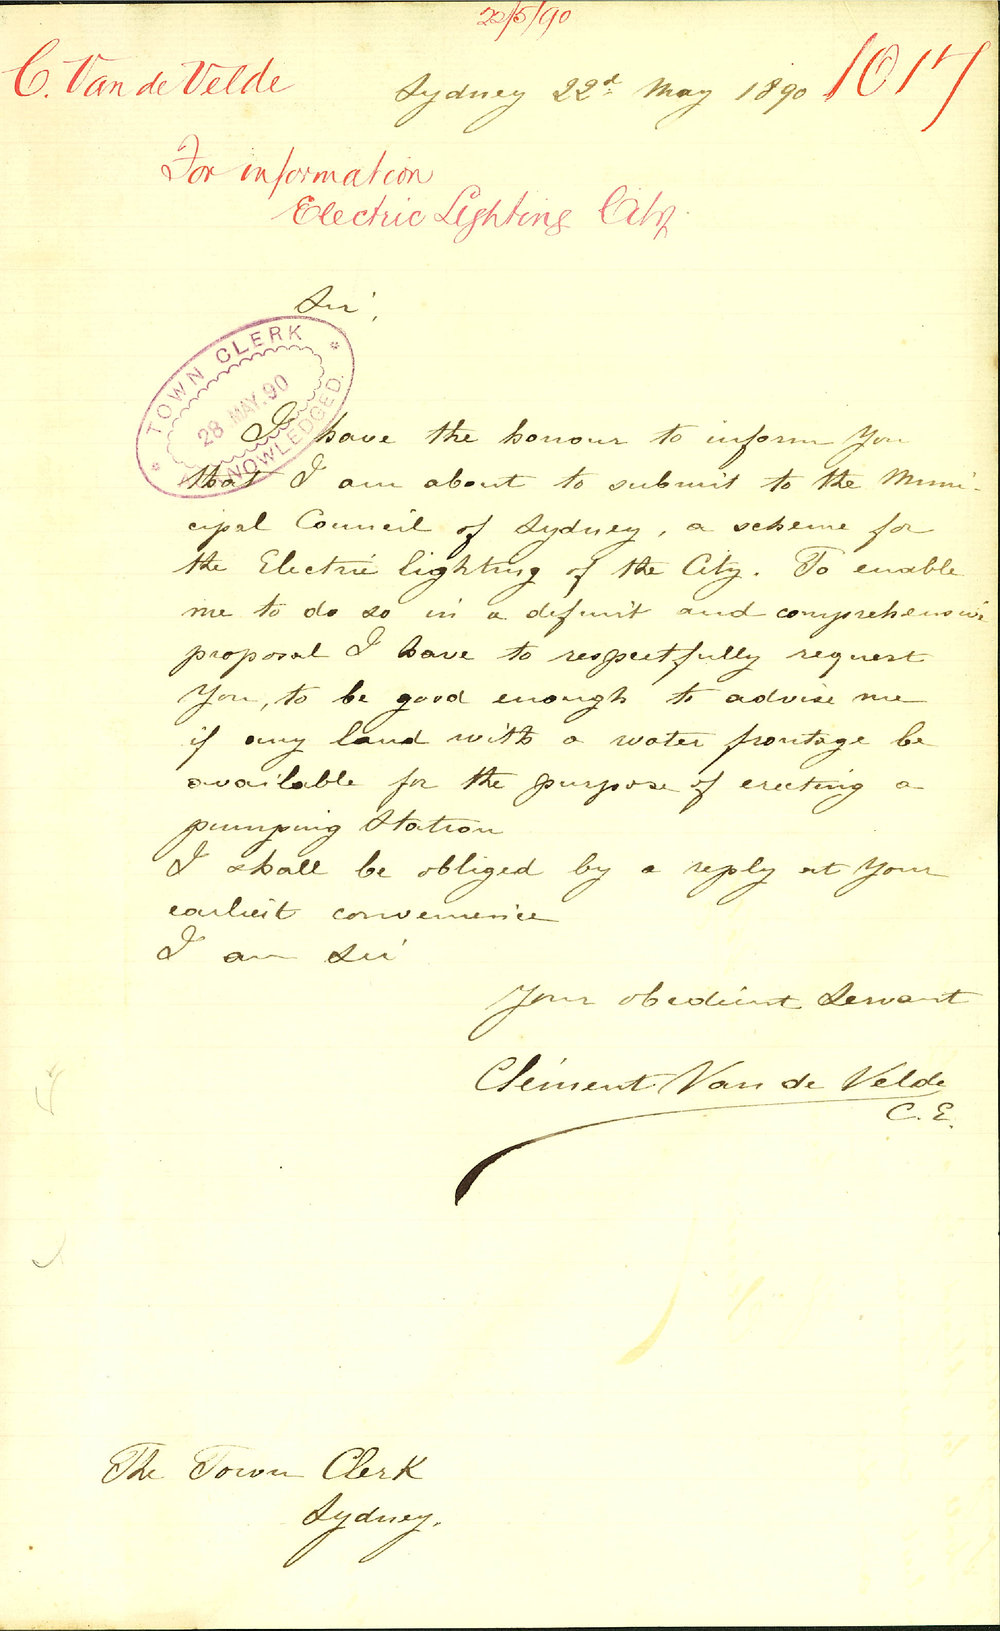 22/5/90
C. Van de Velde
Sydney 22d. May 1890
1017
For information
Electric Lighting City.
Sir,
TOWN CLERK
28 MAY. 90
ACKNOWLEDGED.
I have the honour to inform You
that I am about to submit to the Muni-
cipal Council of Sydney, a scheme for
the Electric lighting of the City. To enable
me to do so in a definit and comprehensive
proposal I have to respectfully request
You, to be good enough to advise me
if any land with a water frontage be
available for the purpose of erecting a
pumping Station
I shall be obliged by a reply at Your
earliest convenience
I am Sir
Your obedient Servant
Clément Van de Velde
C. E.
The Town Clerk
Sydney.